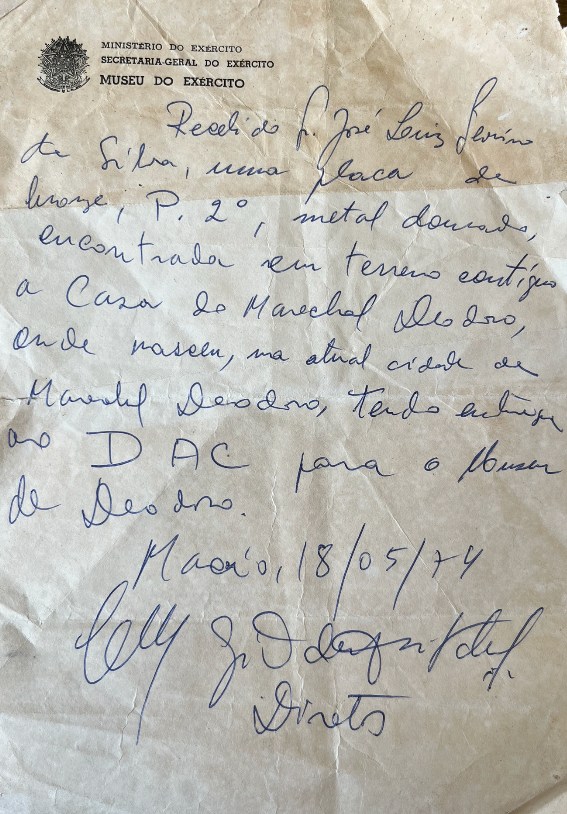 MINISTÉRIO DO EXÉRCITO
SECRETARIA-GERAL DO EXÉRCITO
MUSEU DO EXÉRCITO
Recebi do Sr. José Luiz
da Silva, uma placa de
bronze, P. 2º, metal dourado,
encontrada em terreno contíguo
a Casa do Marechal Deodoro,
onde nasceu, na atual cidade de
Marechal Deodoro, tendo entregue
ao DAC para o Museu
de Deodoro.
Maceió, 18/05/74
Diretor